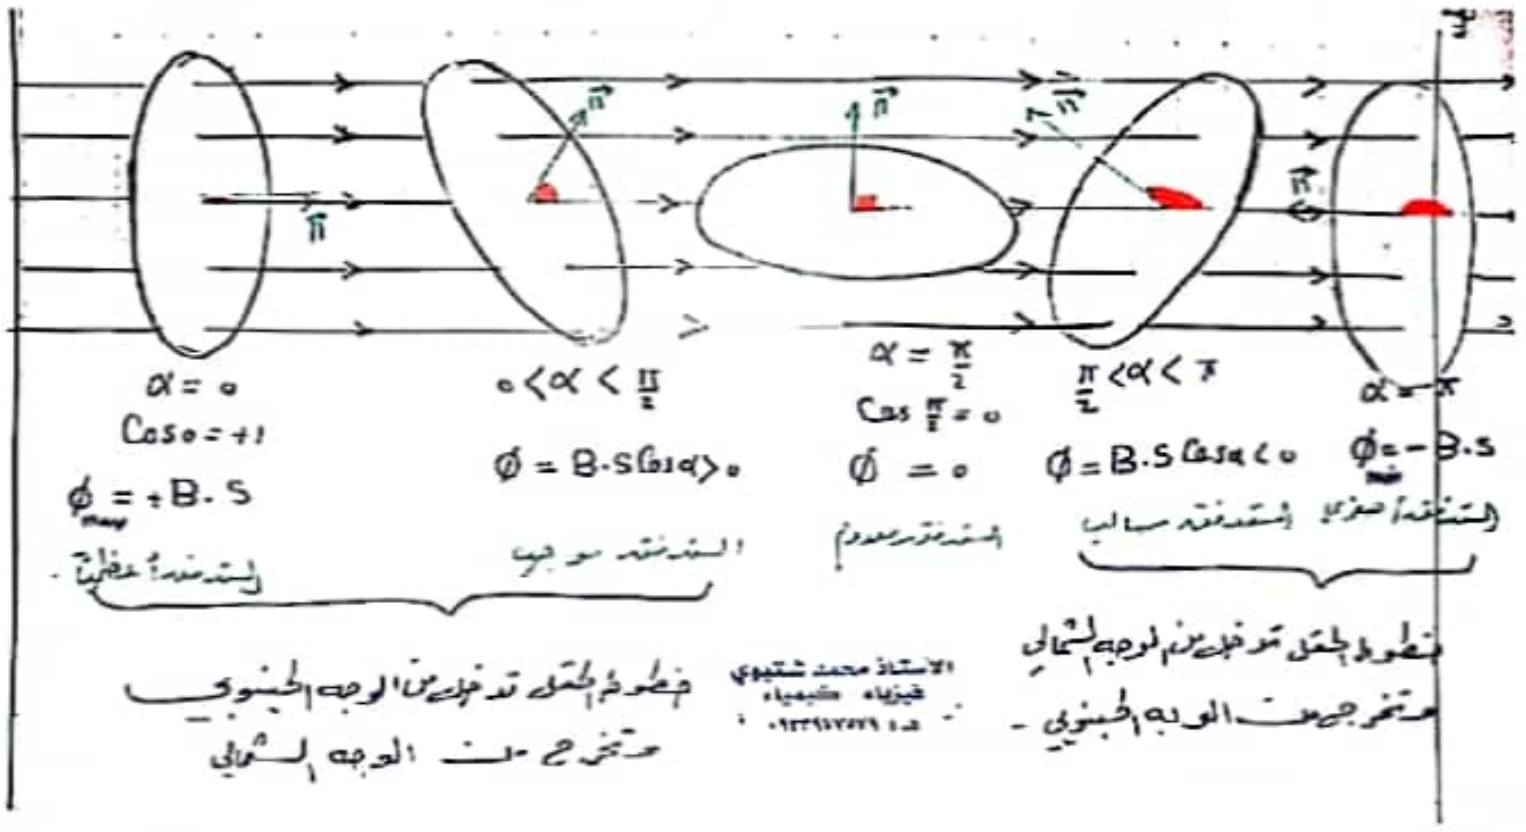 n⃗
n⃗
n⃗
n⃗
n⃗
α = 0
Cos 0 = +1
ϕmax = + B . S
التدفق أعظمياً .
0 < α < π/2
ϕ = B . S Cos α > 0
التدفق موجب
α = π/2
Cos π/2 = 0
ϕ = 0
التدفق معدوم
π/2 < α < π
ϕ = B . S Cos α < 0
التدفق سالب
α = π
ϕmin = - B . S
التدفق أصغري
خطوط الحقل تدخل من الوجه الجنوبي
وتخرج من الوجه الشمالي
الأستاذ محمد شتيوي
فيزياء كيمياء
خطوط الحقل تدخل من الوجه الشمالي
وتخرج من الوجه الجنوبي .